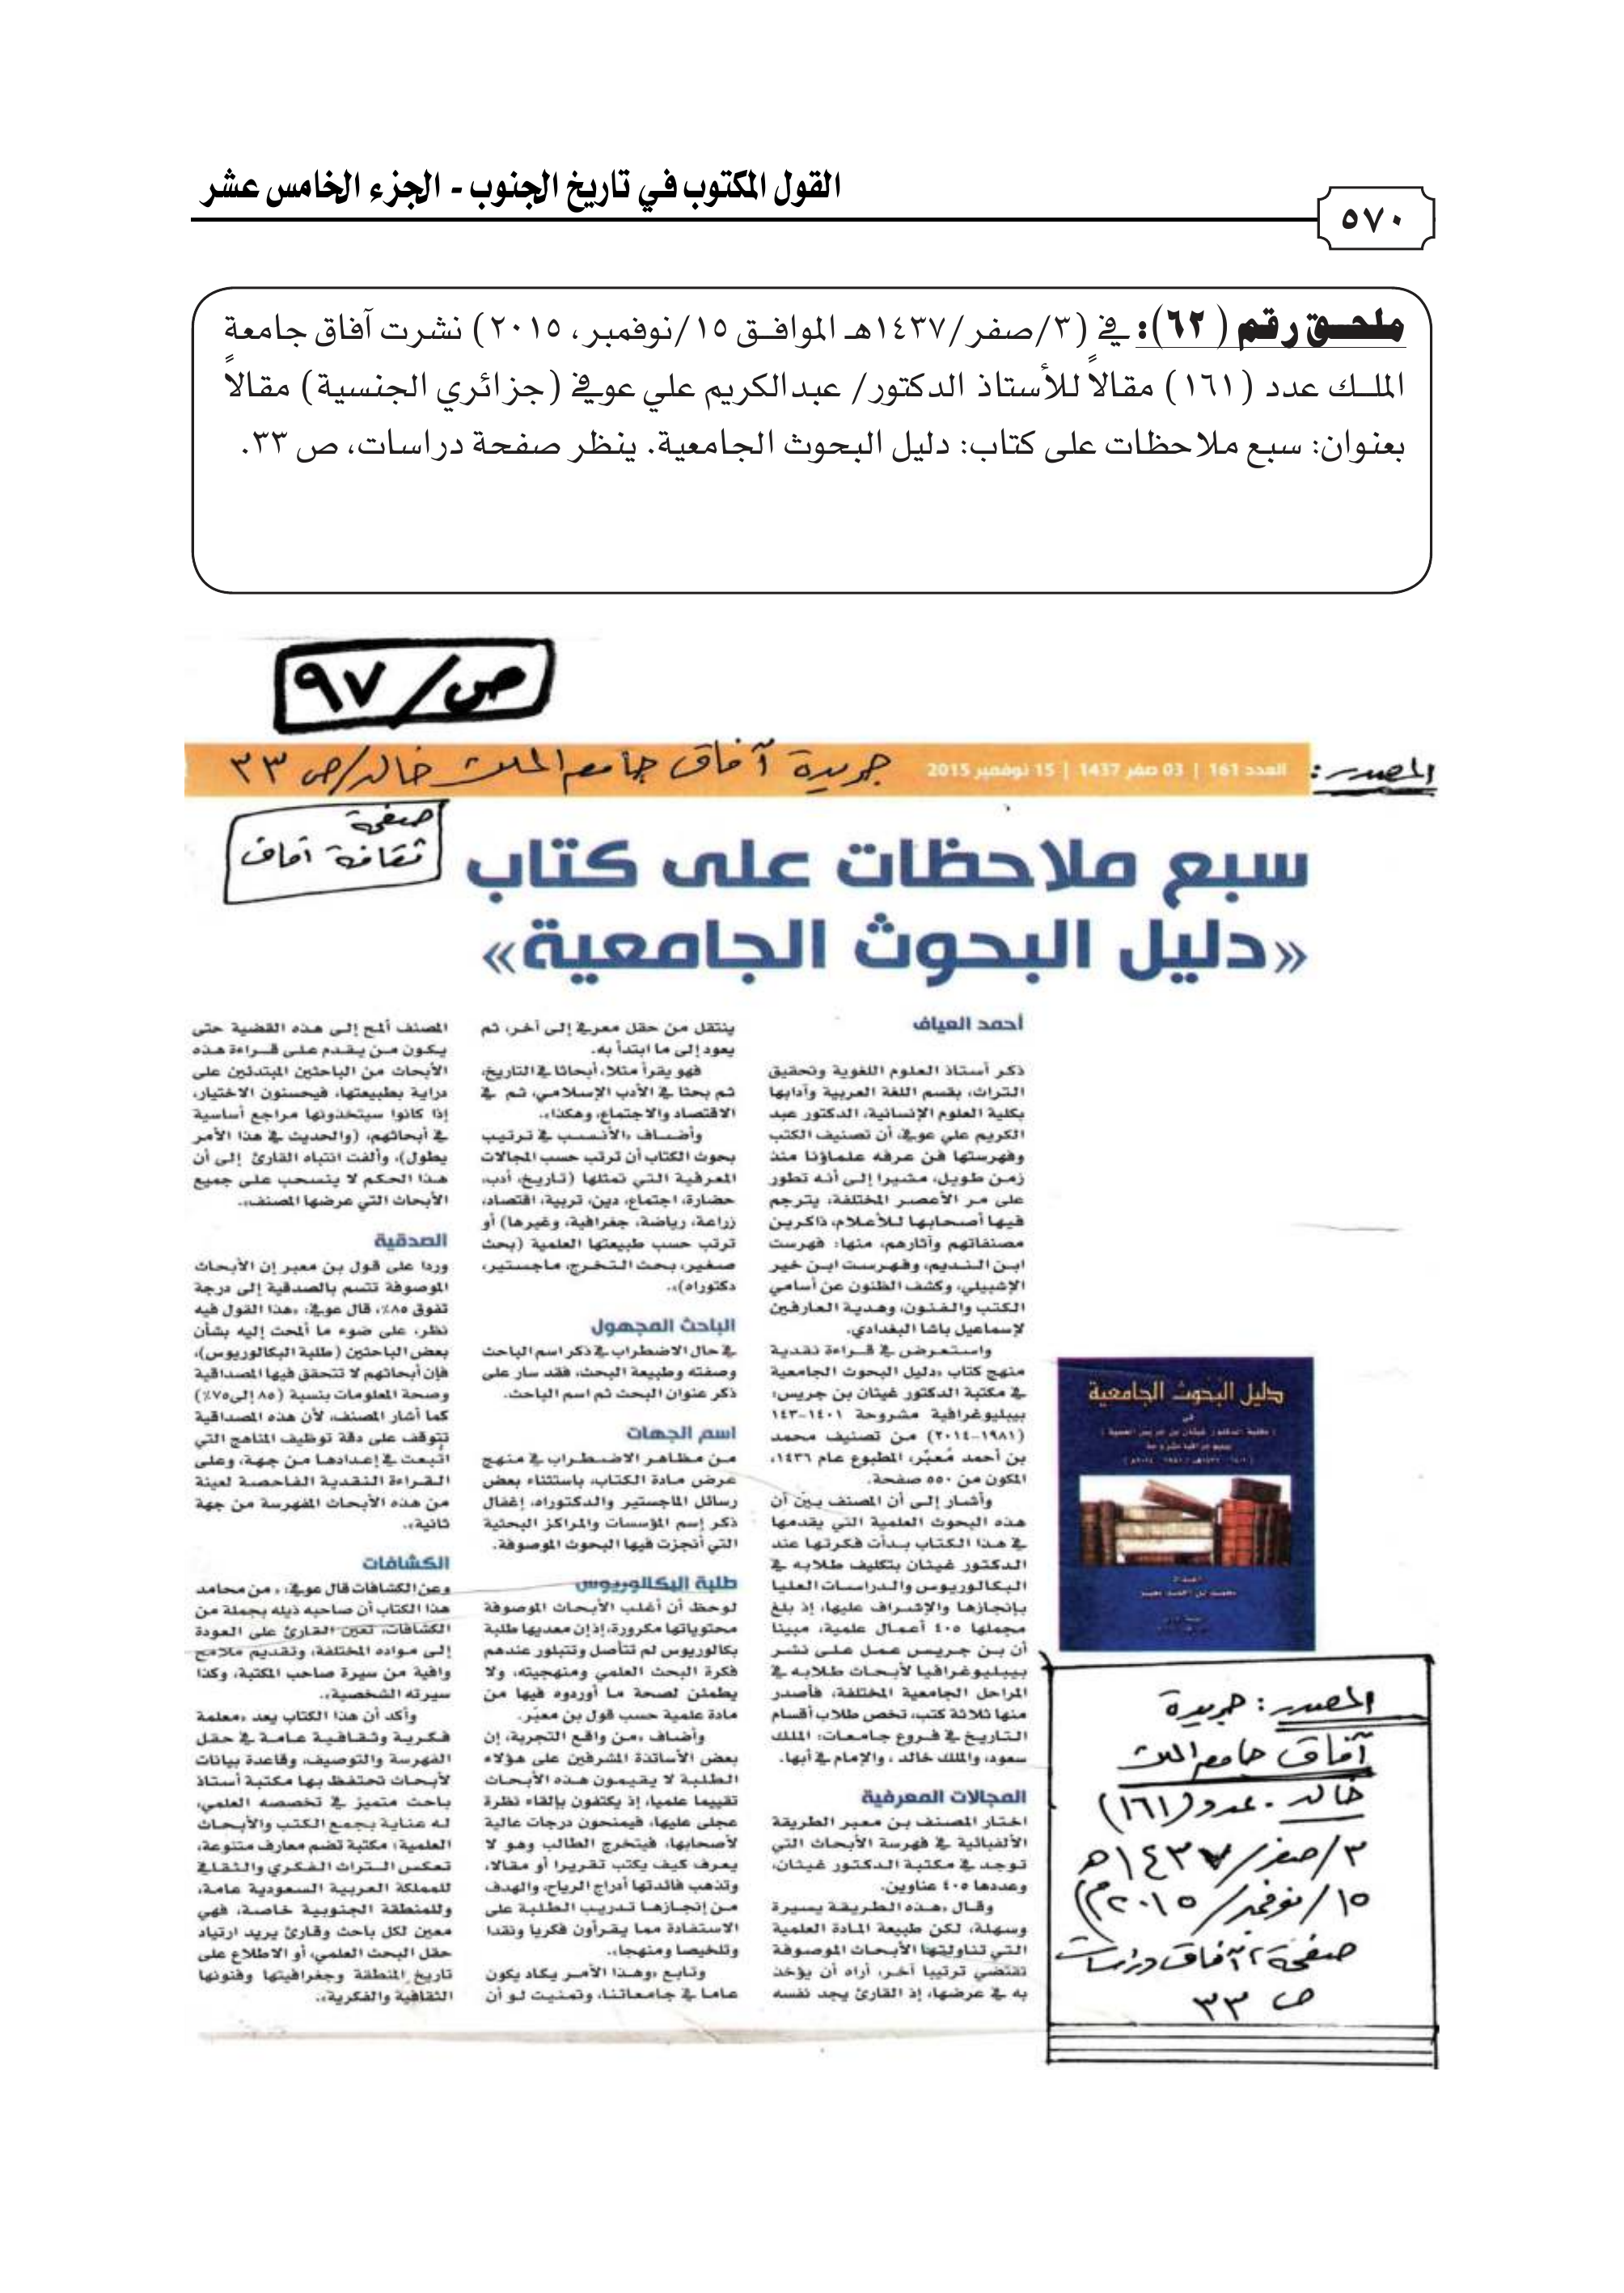 القول المكتوب في تاريخ الجنوب - الجزء الخامس عشر
٥٧٠
ملحـق رقم (٦٢): في (٣/صفر/١٤٣٧هـ الموافـق ١٥/نوفمبر، ٢٠١٥) نشرت آفاق جامعة
الملـك عدد (١٦١) مقالاً للأستاذ الدكتور/ عبدالكريم علي عوفي (جزائري الجنسية) مقالاً
بعنوان: سبع ملاحظات على كتاب: دليل البحوث الجامعية. ينظر صفحة دراسات، ص ٣٣.
ص/ ٩٧
المصدر:
العدد 161 | 03 صفر 1437 | 15 نوفمبر 2015
جريدة آفاق جامعة الملك خالد/ص ٣٣
صفحة
ثقافة آفاق
سبع ملاحظات على كتاب
«دليل البحوث الجامعية»
أحمد العياف
ذكر أستاذ العلوم اللغوية وتحقيق
التراث، بقسم اللغة العربية وآدابها
بكلية العلوم الإنسانية، الدكتور عبد
الكريم علي عوفي، أن تصنيف الكتب
وفهرستها فن عرفه علماؤنا منذ
زمن طويل، مشيرا إلى أنه تطور
على مر الأعصر المختلفة، يترجم
فيها أصحابها للأعلام، ذاكرين
مصنفاتهم وآثارهم، منها: فهرست
ابن النديم، وفهرست ابن خير
الإشبيلي، وكشف الظنون عن أسامي
الكتب والفنون، وهدية العارفين
لإسماعيل باشا البغدادي.
واستعرض في قراءة نقدية
منهج كتاب «دليل البحوث الجامعية
في مكتبة الدكتور غيثان بن جريس:
بيبليوغرافية مشروحة ١٤٠١-١٤٣
(١٩٨١-٢٠١٤) من تصنيف محمد
بن أحمد مُعبّر، المطبوع عام ١٤٣٦،
المكون من ٥٥٠ صفحة.
وأشار إلى أن المصنف بيّن أن
هذه البحوث العلمية التي يقدمها
في هذا الكتاب بدأت فكرتها عند
الدكتور غيثان بتكليف طلابه في
البكالوريوس والدراسات العليا
بإنجازها والإشراف عليها، إذ بلغ
مجملها ٤٠٥ أعمال علمية، مبينا
أن بن جريس عمل على نشر
بيبليوغرافيا لأبحاث طلابه في
المراحل الجامعية المختلفة، فأصدر
منها ثلاثة كتب، تخص طلاب أقسام
التاريخ في فروع جامعات: الملك
سعود، والملك خالد، والإمام في أبها.
المجالات المعرفية
اختار المصنف بن معبر الطريقة
الألفبائية في فهرسة الأبحاث التي
توجد في مكتبة الدكتور غيثان،
وعددها ٤٠٥ عناوين.
وقال «هذه الطريقة يسيرة
وسهلة، لكن طبيعة المادة العلمية
التي تناولتها الأبحاث الموصوفة
تقتضي ترتيبا آخر، أراه أن يؤخذ
به في عرضها، إذ القارئ يجد نفسه
ينتقل من حقل معرفي إلى آخر، ثم
يعود إلى ما ابتدأ به.
فهو يقرأ مثلا، أبحاثا في التاريخ،
ثم بحثا في الأدب الإسلامي، ثم في
الاقتصاد والاجتماع، وهكذا».
وأضاف «الأنسب في ترتيب
بحوث الكتاب أن ترتب حسب المجالات
المعرفية التي تمثلها (تاريخ، أدب،
حضارة، اجتماع، دين، تربية، اقتصاد،
زراعة، رياضة، جغرافية، وغيرها) أو
ترتب حسب طبيعتها العلمية (بحث
صغير، بحث التخرج، ماجستير،
دكتوراه)».
الباحث المجهول
في حال الاضطراب في ذكر اسم الباحث
وصفته وطبيعة البحث، فقد سار على
ذكر عنوان البحث ثم اسم الباحث.
اسم الجهات
من مظاهر الاضطراب في منهج
عرض مادة الكتاب، باستثناء بعض
رسائل الماجستير والدكتوراه، إغفال
ذكر إسم المؤسسات والمراكز البحثية
التي أنجزت فيها البحوث الموصوفة.
طلبة البكالوريوس
لوحظ أن أغلب الأبحاث الموصوفة
محتوياتها مكرورة، إذ إن معديها طلبة
بكالوريوس لم تتأصل وتتبلور عندهم
فكرة البحث العلمي ومنهجيته، ولا
يطمئن لصحة ما أوردوه فيها من
مادة علمية حسب قول بن معبّر.
وأضاف «من واقع التجربة، إن
بعض الأساتذة المشرفين على هؤلاء
الطلبة لا يقيمون هذه الأبحاث
تقييما علميا، إذ يكتفون بإلقاء نظرة
عجلى عليها، فيمنحون درجات عالية
لأصحابها، فيتخرج الطالب وهو لا
يعرف كيف يكتب تقريرا أو مقالا،
وتذهب فائدتها أدراج الرياح، والهدف
من إنجازها تدريب الطلبة على
الاستفادة مما يقرأون فكريا ونقدا
وتلخيصا ومنهجا».
وتابع «وهذا الأمر يكاد يكون
عاما في جامعاتنا، وتمنيت لو أن
المصنف ألمح إلى هذه القضية حتى
يكون من يقدم على قراءة هذه
الأبحاث من الباحثين المبتدئين على
دراية بطبيعتها، فيحسنون الاختيار،
إذا كانوا سيتخذونها مراجع أساسية
في أبحاثهم، (والحديث في هذا الأمر
يطول)، وألفت انتباه القارئ إلى أن
هذا الحكم لا ينسحب على جميع
الأبحاث التي عرضها المصنف».
الصدقية
وردا على قول بن معبر إن الأبحاث
الموصوفة تتسم بالصدقية إلى درجة
تفوق ٨٥٪، قال عوفي: «هذا القول فيه
نظر، على ضوء ما ألمحت إليه بشأن
بعض الباحثين (طلبة البكالوريوس)،
فإن أبحاثهم لا تتحقق فيها المصداقية
وصحة المعلومات بنسبة (٨٥ إلى ٧٥٪)
كما أشار المصنف، لأن هذه المصداقية
تتوقف على دقة توظيف المناهج التي
اتُبعت في إعدادها من جهة، وعلى
القراءة النقدية الفاحصة لعينة
من هذه الأبحاث المفهرسة من جهة
ثانية».
الكشافات
وعن الكشافات قال عوفي: «من محامد
هذا الكتاب أن صاحبه ذيله بجملة من
الكشافات، تعين القارئ على العودة
إلى مواده المختلفة، وتقديم ملامح
وافية من سيرة صاحب المكتبة، وكذا
سيرته الشخصية».
وأكد أن هذا الكتاب يعد «معلمة
فكرية وثقافية عامة في حقل
الفهرسة والتوصيف، وقاعدة بيانات
لأبحاث تحتفظ بها مكتبة أستاذ
باحث متميز في تخصصه العلمي،
له عناية بجمع الكتب والأبحاث
العلمية؛ مكتبة تضم معارف متنوعة،
تعكس التراث الفكري والثقافي
للمملكة العربية السعودية عامة،
وللمنطقة الجنوبية خاصة، فهي
معين لكل باحث وقارئ يريد ارتياد
حقل البحث العلمي، أو الاطلاع على
تاريخ المنطقة وجغرافيتها وفنونها
الثقافية والفكرية».
دليل البحوث الجامعية
في
المصدر: جريدة
آفاق جامعة الملك
خالد. عدد (١٦١)
٣/صفر/١٤٣٧هـ
١٥/نوفمبر/٢٠١٥م)
صفحة آفاق دراسات
ص ٣٣